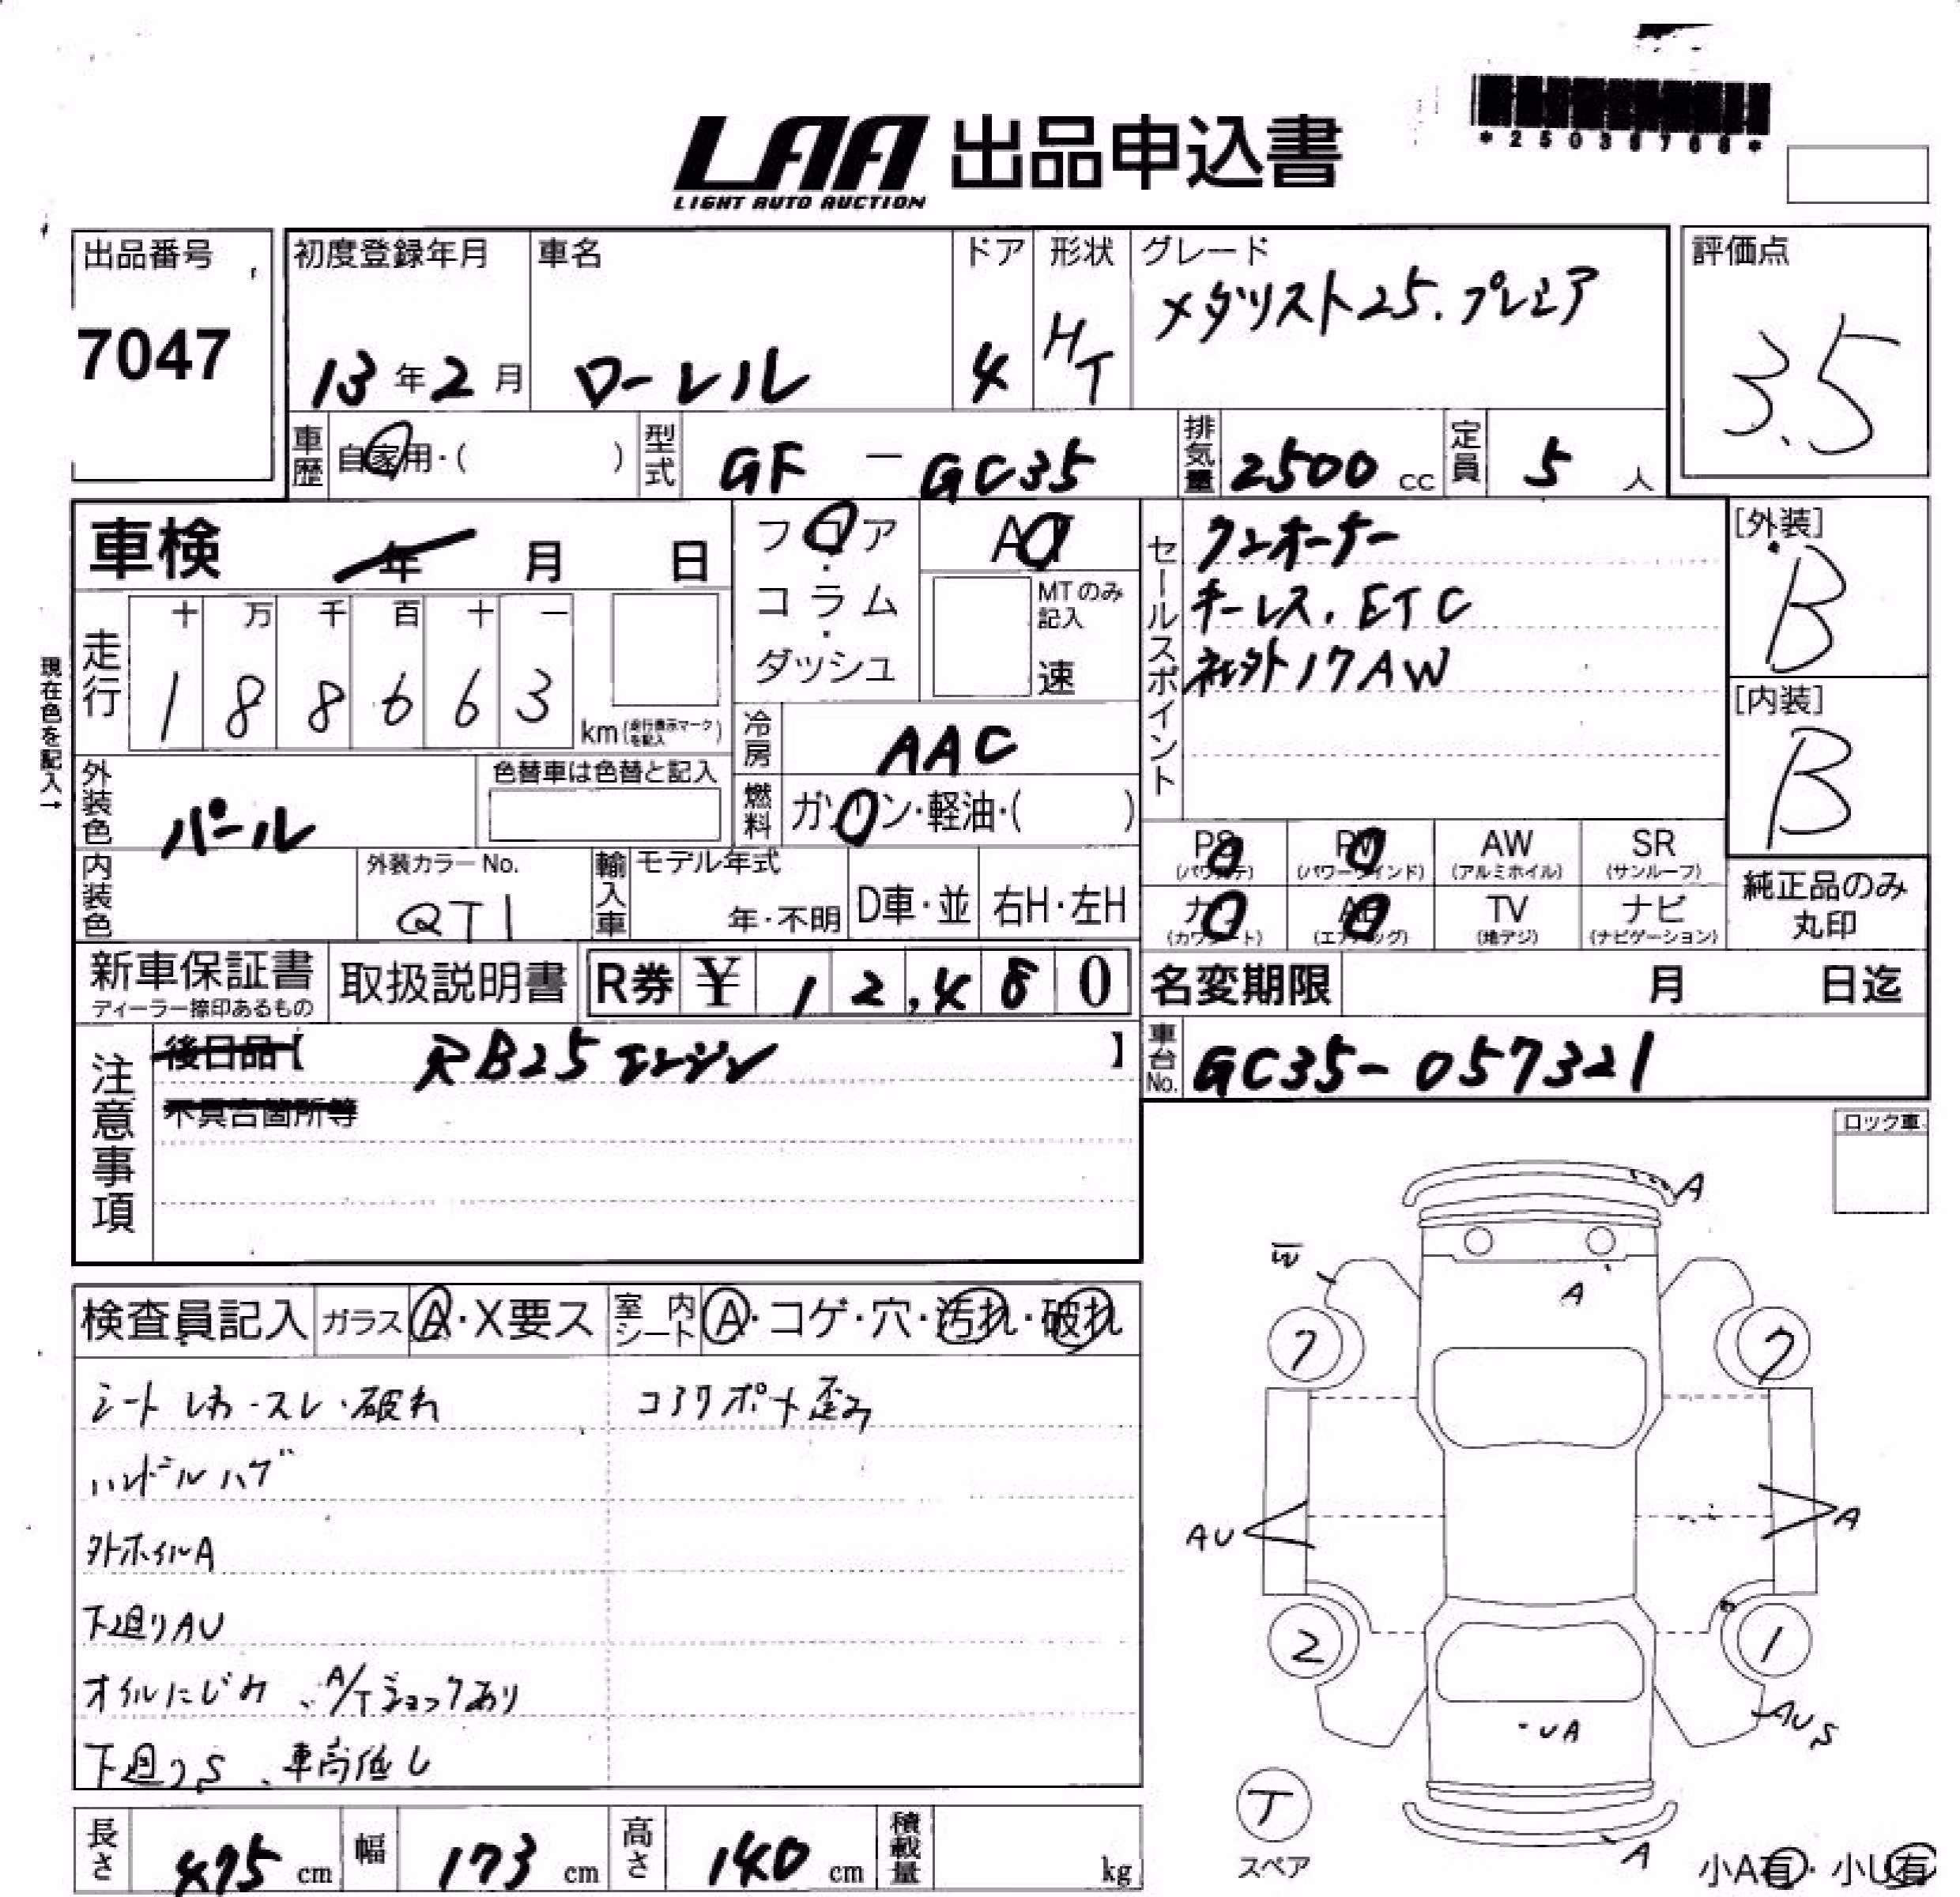 *25036766*
LAA 出品申込書
LIGHT AUTO AUCTION
出品番号
7047
初度登録年月
13年2月
車名
ローレル
ドア
4
形状
HT
グレード
メダリスト25.プレミア
評価点
3.5
車歴 自家用・( )
型式 GF - GC35
排気量 2500 cc
定員 5 人
車検 年 月 日
フロア・コラム・ダッシュ
AT
MTのみ記入
速
セールスポイント
ワンオーナー
キーレス. ETC
社外17AW
[外装]
B
[内装]
B
現在色を記入→
走行
十 万 千 百 十 一
1 8 8 6 6 3
km(走行表示マークを記入)
冷房 AAC
燃料 ガソリン・軽油・( )
外装色 パール
色替車は色替と記入
内装色
外装カラーNo.
QT1
輸入車
モデル年式
年・不明
D車・並
右H・左H
PS (パワステ)
PW (パワーウインド)
AW (アルミホイル)
SR (サンルーフ)
カワ (カワシート)
AB (エアバッグ)
TV (地デジ)
ナビ (ナビゲーション)
純正品のみ
丸印
新車保証書
ディーラー捺印あるもの
取扱説明書
R券 ¥ 12,480
名変期限 月 日迄
注意事項
後日品【 RB25エンジン 】
不具合箇所等
車台No. GC35-057321
ロック車
検査員記入
ガラス A・X要ス
室内シート A・コゲ・穴・汚れ・破れ
シートしわ・スレ・破れ
コアサポート歪み
ハンドルハゲ
外ホイルA
下廻りAU
オイルにじみ、A/Tショックあり
下廻りS、車高低し
A
W
A
7
7
AU
A
2
1
AUS
UA
T
スペア
A
小A有・小U有
長さ 475 cm
幅 173 cm
高さ 140 cm
積載量 kg